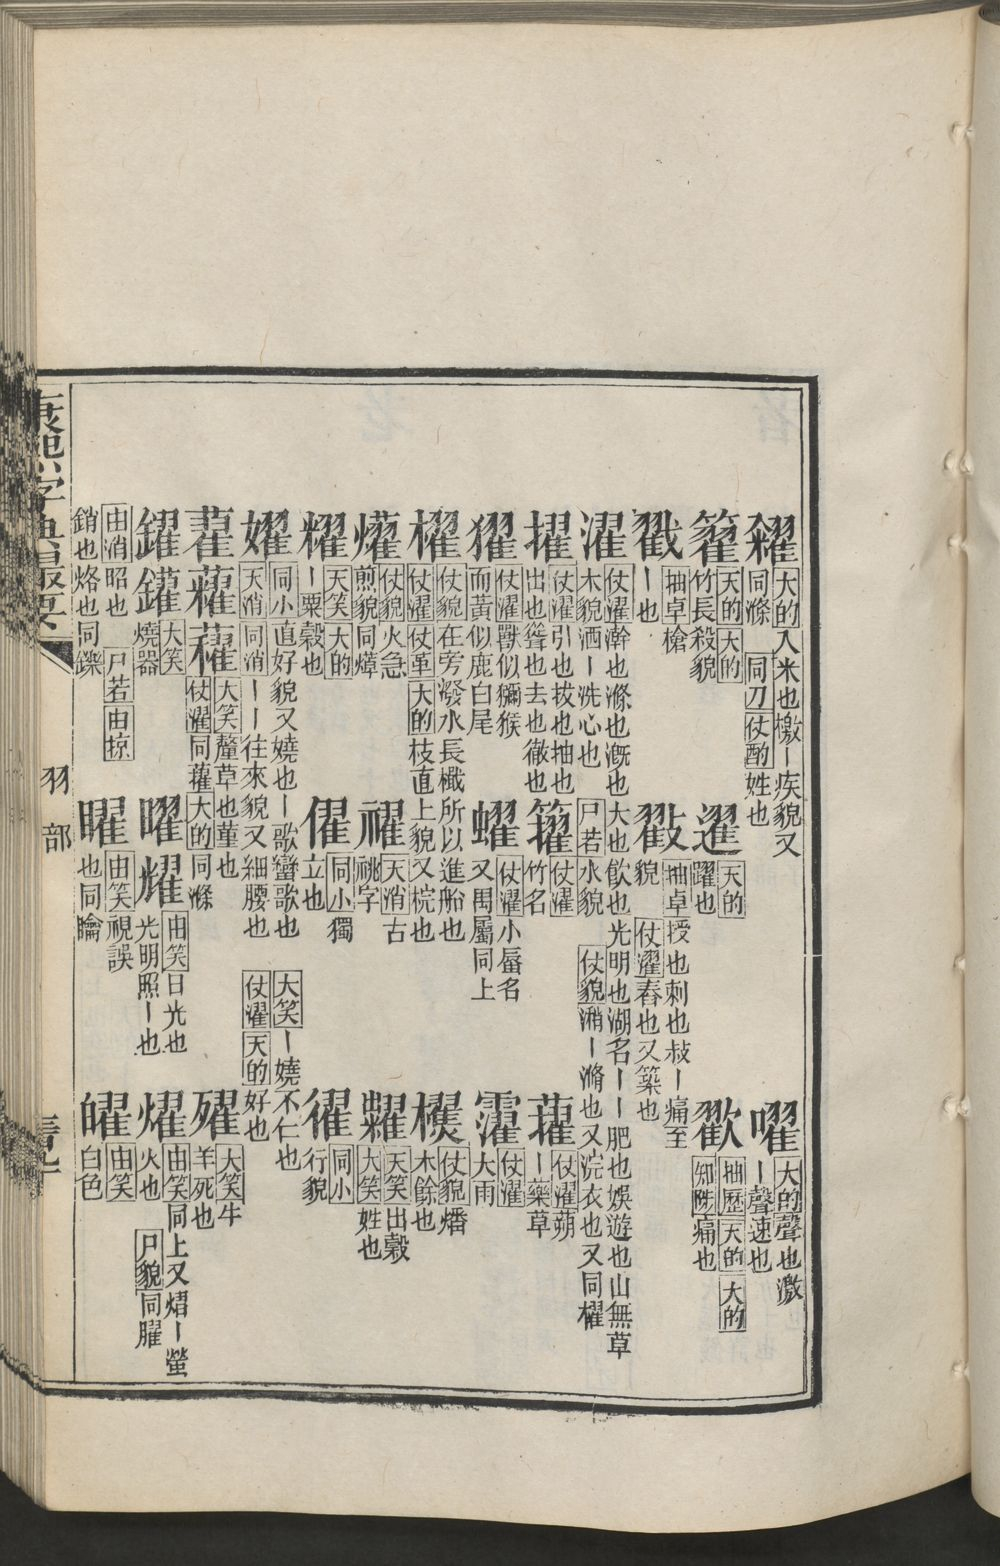 糴大的入米也檄ー疾貌又同滌同刀仗酌姓也
嚁大的聲也激ー聲速也
籊天的大的竹長殺貌
趯天的躍也
抽歷天的大的知陟痛也
戳抽卓槍ー也
抽卓授也刺也敊ー痛至貌仗濯舂也又築也
濯仗濯澣也滌也漑也大也飲也光明也湖名ーー肥也娛遊也山無草木貌洒ー洗心也尸若水貌仗貌潲ー滫也又浣衣也又同櫂
擢仗濯引也拔也抽也出也聳也去也徹也
籱仗濯竹名
蒮仗濯蒴ー藥草
玃仗濯獸似獮猴而黃似鹿白尾
蠗仗濯小蜃名又禺屬同上
仗濯大雨
櫂仗貌在旁潑水長檝所以進船也仗濯仗革大的枝直上貌又梡也
仗貌燔木餘也
爟仗貌火急煎貌同㷹
天消古祧字
糶天笑出穀大笑姓也
糶天笑大的ー粟穀也
同小獨立也
同小行貌
嬥同小直好貌又嬈也ー歌蠻歌也大笑ー嬈不仁也天消同消ーー往來貌又細腰也仗濯天的好也
藋大笑釐草也堇也仗濯同蓷大的同滌
大笑牛羊死也
鑃大笑燒器
曜耀由笑日光也光明照ー也
燿由笑同上又熠ー螢火也尸貌同臞
由消昭也尸若由掠銷也烙也同鑠
矅由笑視誤也同瞮
皭由笑白色
康熙字典撮要
羽部